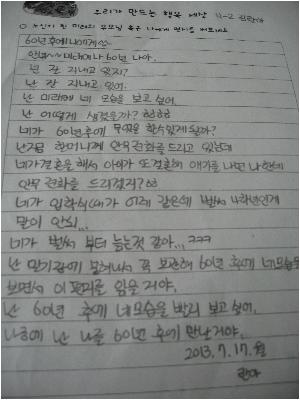 우리가 만드는 행복 세상
60년후에 나에게
안녕~~ 미래에 나 60년 나야.
넌 잘 지내고 있지?
난 잘 지내고 있어.
난 미래에 네 모습을 보고 싶어.
난 어떻게 생겼을까? ㅎㅎㅎㅎ
네가 60년후에 무엇을 할수있게 될까?
난지금 할머니께 안부 전화를 드리고 있는데
네가결혼을 해서 아이가 또결혼해 애기를 나면 나한테
안부 전화를 드리겠지? ㅎㅎ
네가 입학식때가 어제 같은데 벌써 4학년인게
말이 안돼...
네가 벌써 부터 늙는것 같아... ㅋㅋㅋ
난 일기장에 꼭 보관해 60년 후에 네모습을
보면서 이 편지를 읽을 거야.
난 60년 후에 네모습을 빨리 보고 싶어.
나중에 난 나를 60년 후에 만난거야.
2013.7.17.월
란아